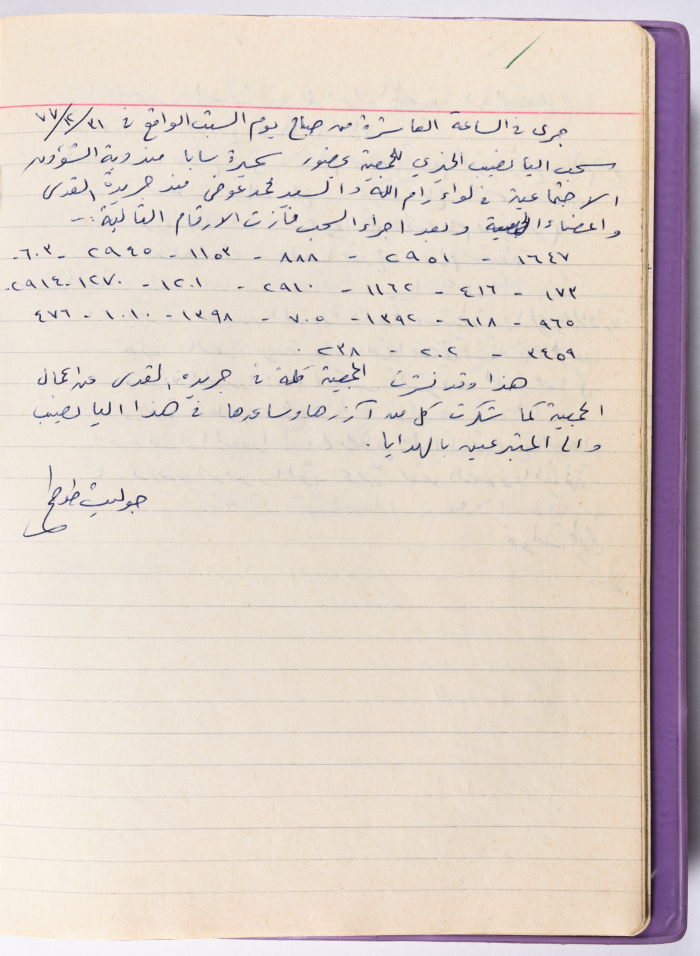 جرى في الساعة العاشرة من صباح يوم السبت الواقع في ٣١/٢/٧٧
سحب اليانصيب الخيري للجمعية بحضور سميرة سابا مندوبة الشؤون
الاجتماعية في لواء رام الله والسيد محمد عوض مندوب جريدة القدس
واعضاء الجمعية وبعد اجراء السحب فازت الارقام التالية:-
١٦٤٧ - ٢٩٥١ - ٨٨٨ - ١١٥٣ - ٢٩٤٥ - ٦٠٣-
١٧٣ - ٤١٦ - ١١٦٢ - ٢٩١٠ - ١٢٠١ - ١٢٧٠ - ٢٩١٤-
٩٦٥ - ٦١٨ - ١٣٩٢ - ٧٠٥ - ١٣٩٨ - ١٠١٠ - ٤٧٦
٣٤٥٩ - ٢٠٢ - ٢٣٨ .
هذا وقد نشرت الجمعية كلمة في جريدة القدس عن اعمال
الجمعية كما شكرت كل من آزرها وساعدها في هذا اليانصيب
والى المتبرعين بالهدايا .
جوليت